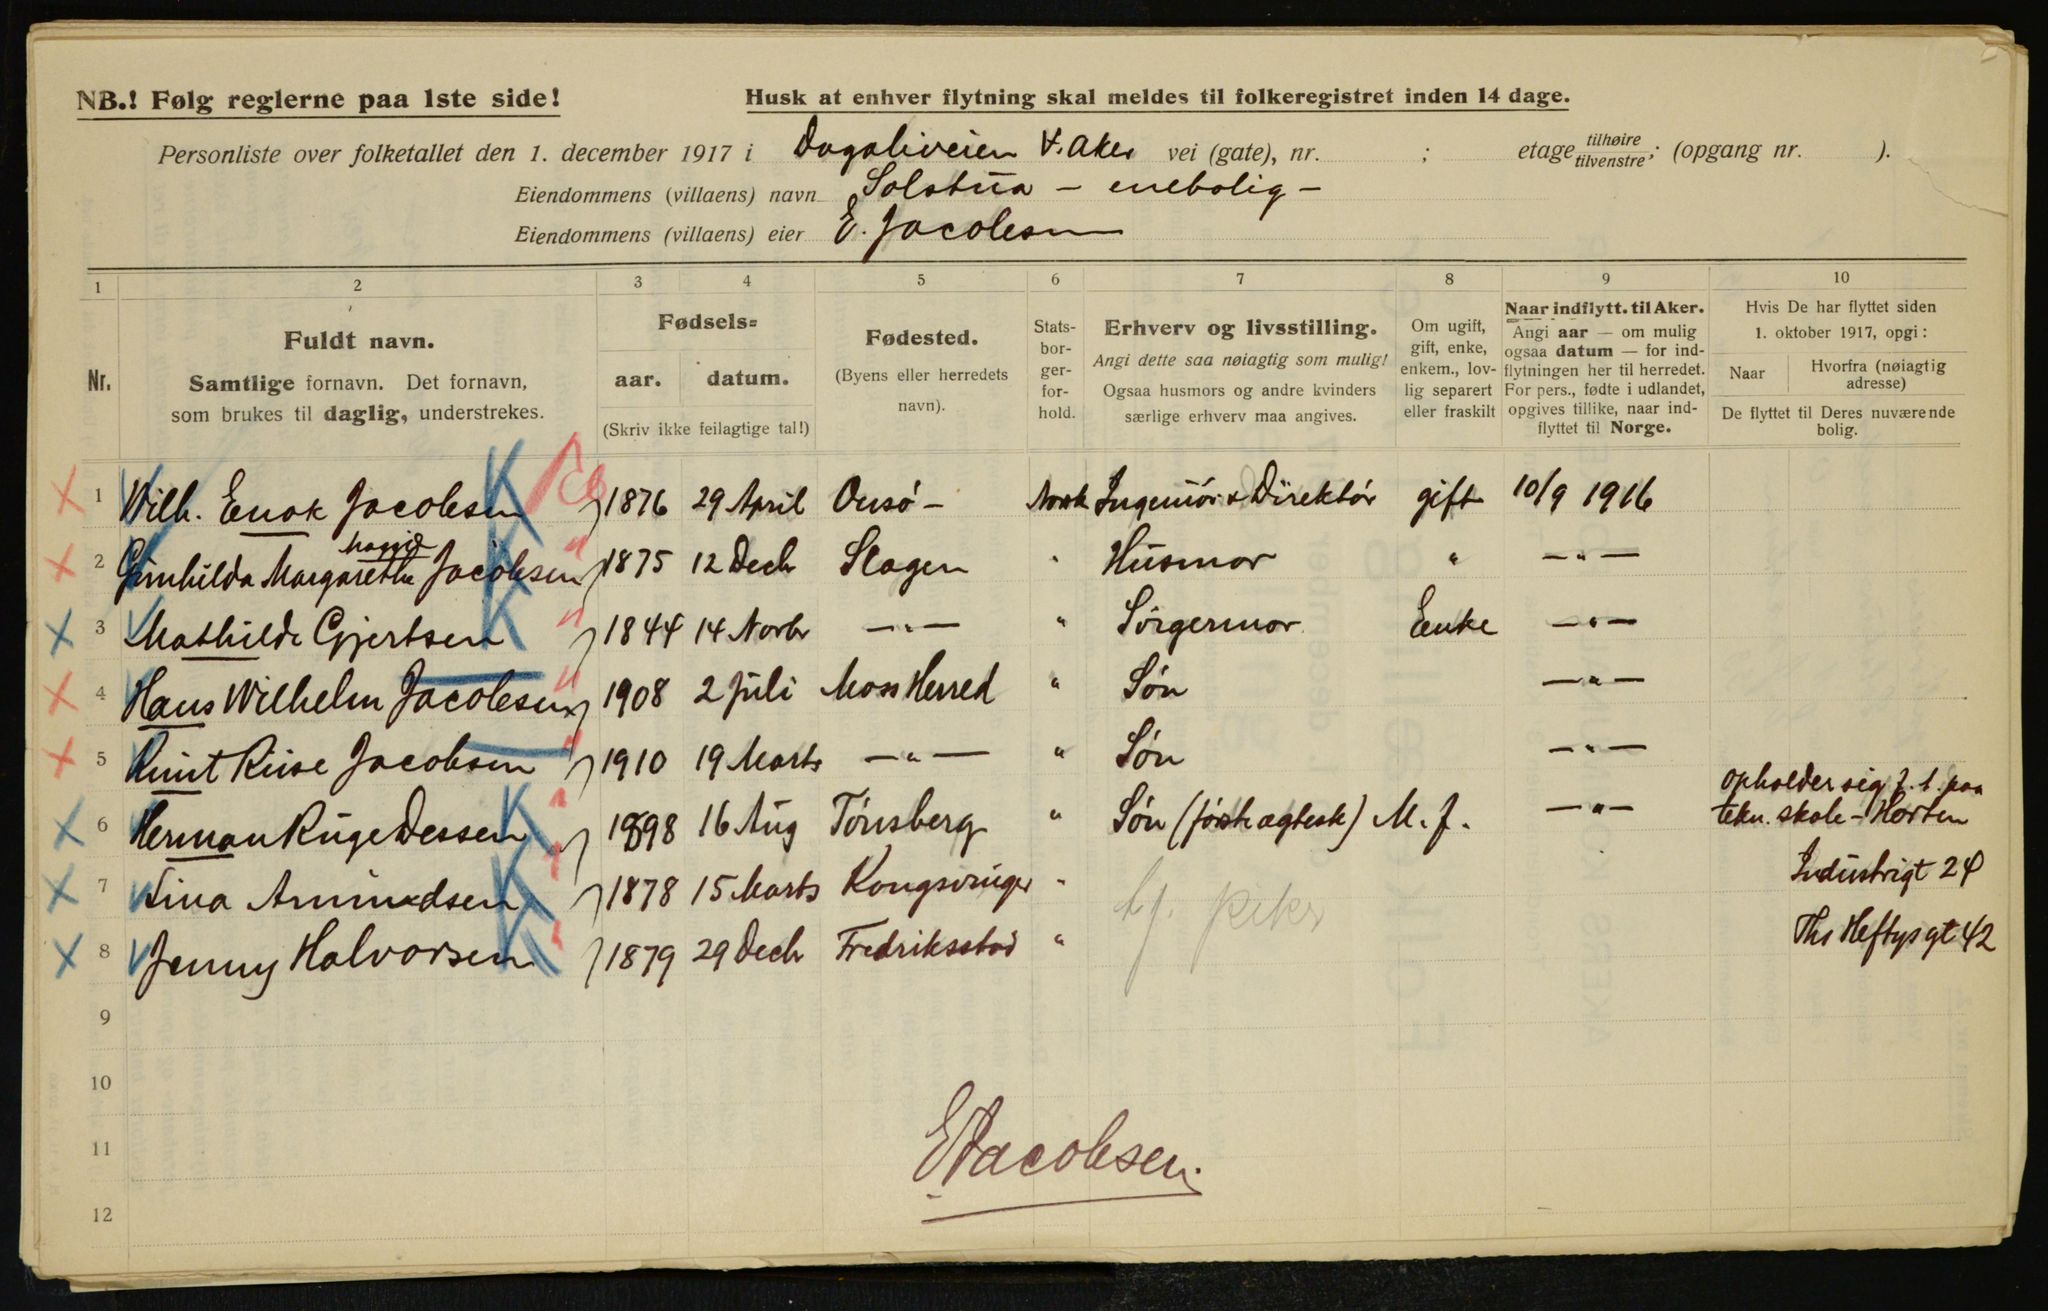 NB.! Følg reglerne paa 1ste side!
Husk at enhver flytning skal meldes til folkeregistret inden 14 dage.
Personliste over folketallet den 1. december 1917 i Dagaliveien V. Aker vei (gate), nr. ; etage tilhøire/tilvenstre; (opgang nr. ).
Eiendommens (villaens) navn Solstua — enebolig —
Eiendommens (villaens) eier E. Jacobsen
1 2 3 4 5 6 7 8 9 10
Nr.
Fuldt navn.
Samtlige fornavn. Det fornavn,
som brukes til daglig, understrekes.
Fødsels=
aar. datum.
(Skriv ikke feilagtige tal!)
Fødested.
(Byens eller herredets
navn).
Stats-
bor-
ger-
for-
hold.
Erhverv og livsstilling.
Angi dette saa nøiagtig som mulig!
Ogsaa husmors og andre kvinders
særlige erhverv maa angives.
Om ugift,
gift, enke,
enkem., lov-
lig separert
eller fraskilt
Naar indflytt. til Aker.
Angi aar — om mulig
ogsaa datum — for ind-
flytningen her til herredet.
For pers., fødte i udlandet,
opgives tillike, naar ind-
flyttet til Norge.
Hvis De har flyttet siden
1. oktober 1917, opgi:
Naar
Hvorfra (nøiagtig
adresse)
De flyttet til Deres nuværende
bolig.
1 Wilh. Enok Jacobsen 1876 29 April Onsø — Norsk Ingeniør & Direktør gift 10/9 1916
2 Gunhilda Margarethe Jacobsen 1875 12 Decb Slagen " Husmor " — " —
3 Mathilde Gjertsen 1844 14 Novbr — " — " Svigermor Enke — " —
4 Hans Wilhelm Jacobsen 1908 2 Juli Moss Herred " Søn — " —
5 Knut Riise Jacobsen 1910 19 Marts — " — " Søn — " —
opholder sig f. t. paa
6 Herman Ruge Dessen 1898 16 Aug Tønsberg " Søn (første egtesk) — " — tekn. skole – Horten
7 Tina Amundsen 1878 15 Marts Kongsvinger " Industrigt 24
8 Jenny Halvorsen 1879 29 Decb Fredriksstad " Ths Heftysgt 42
9
10
11
12
E Jacobsen.